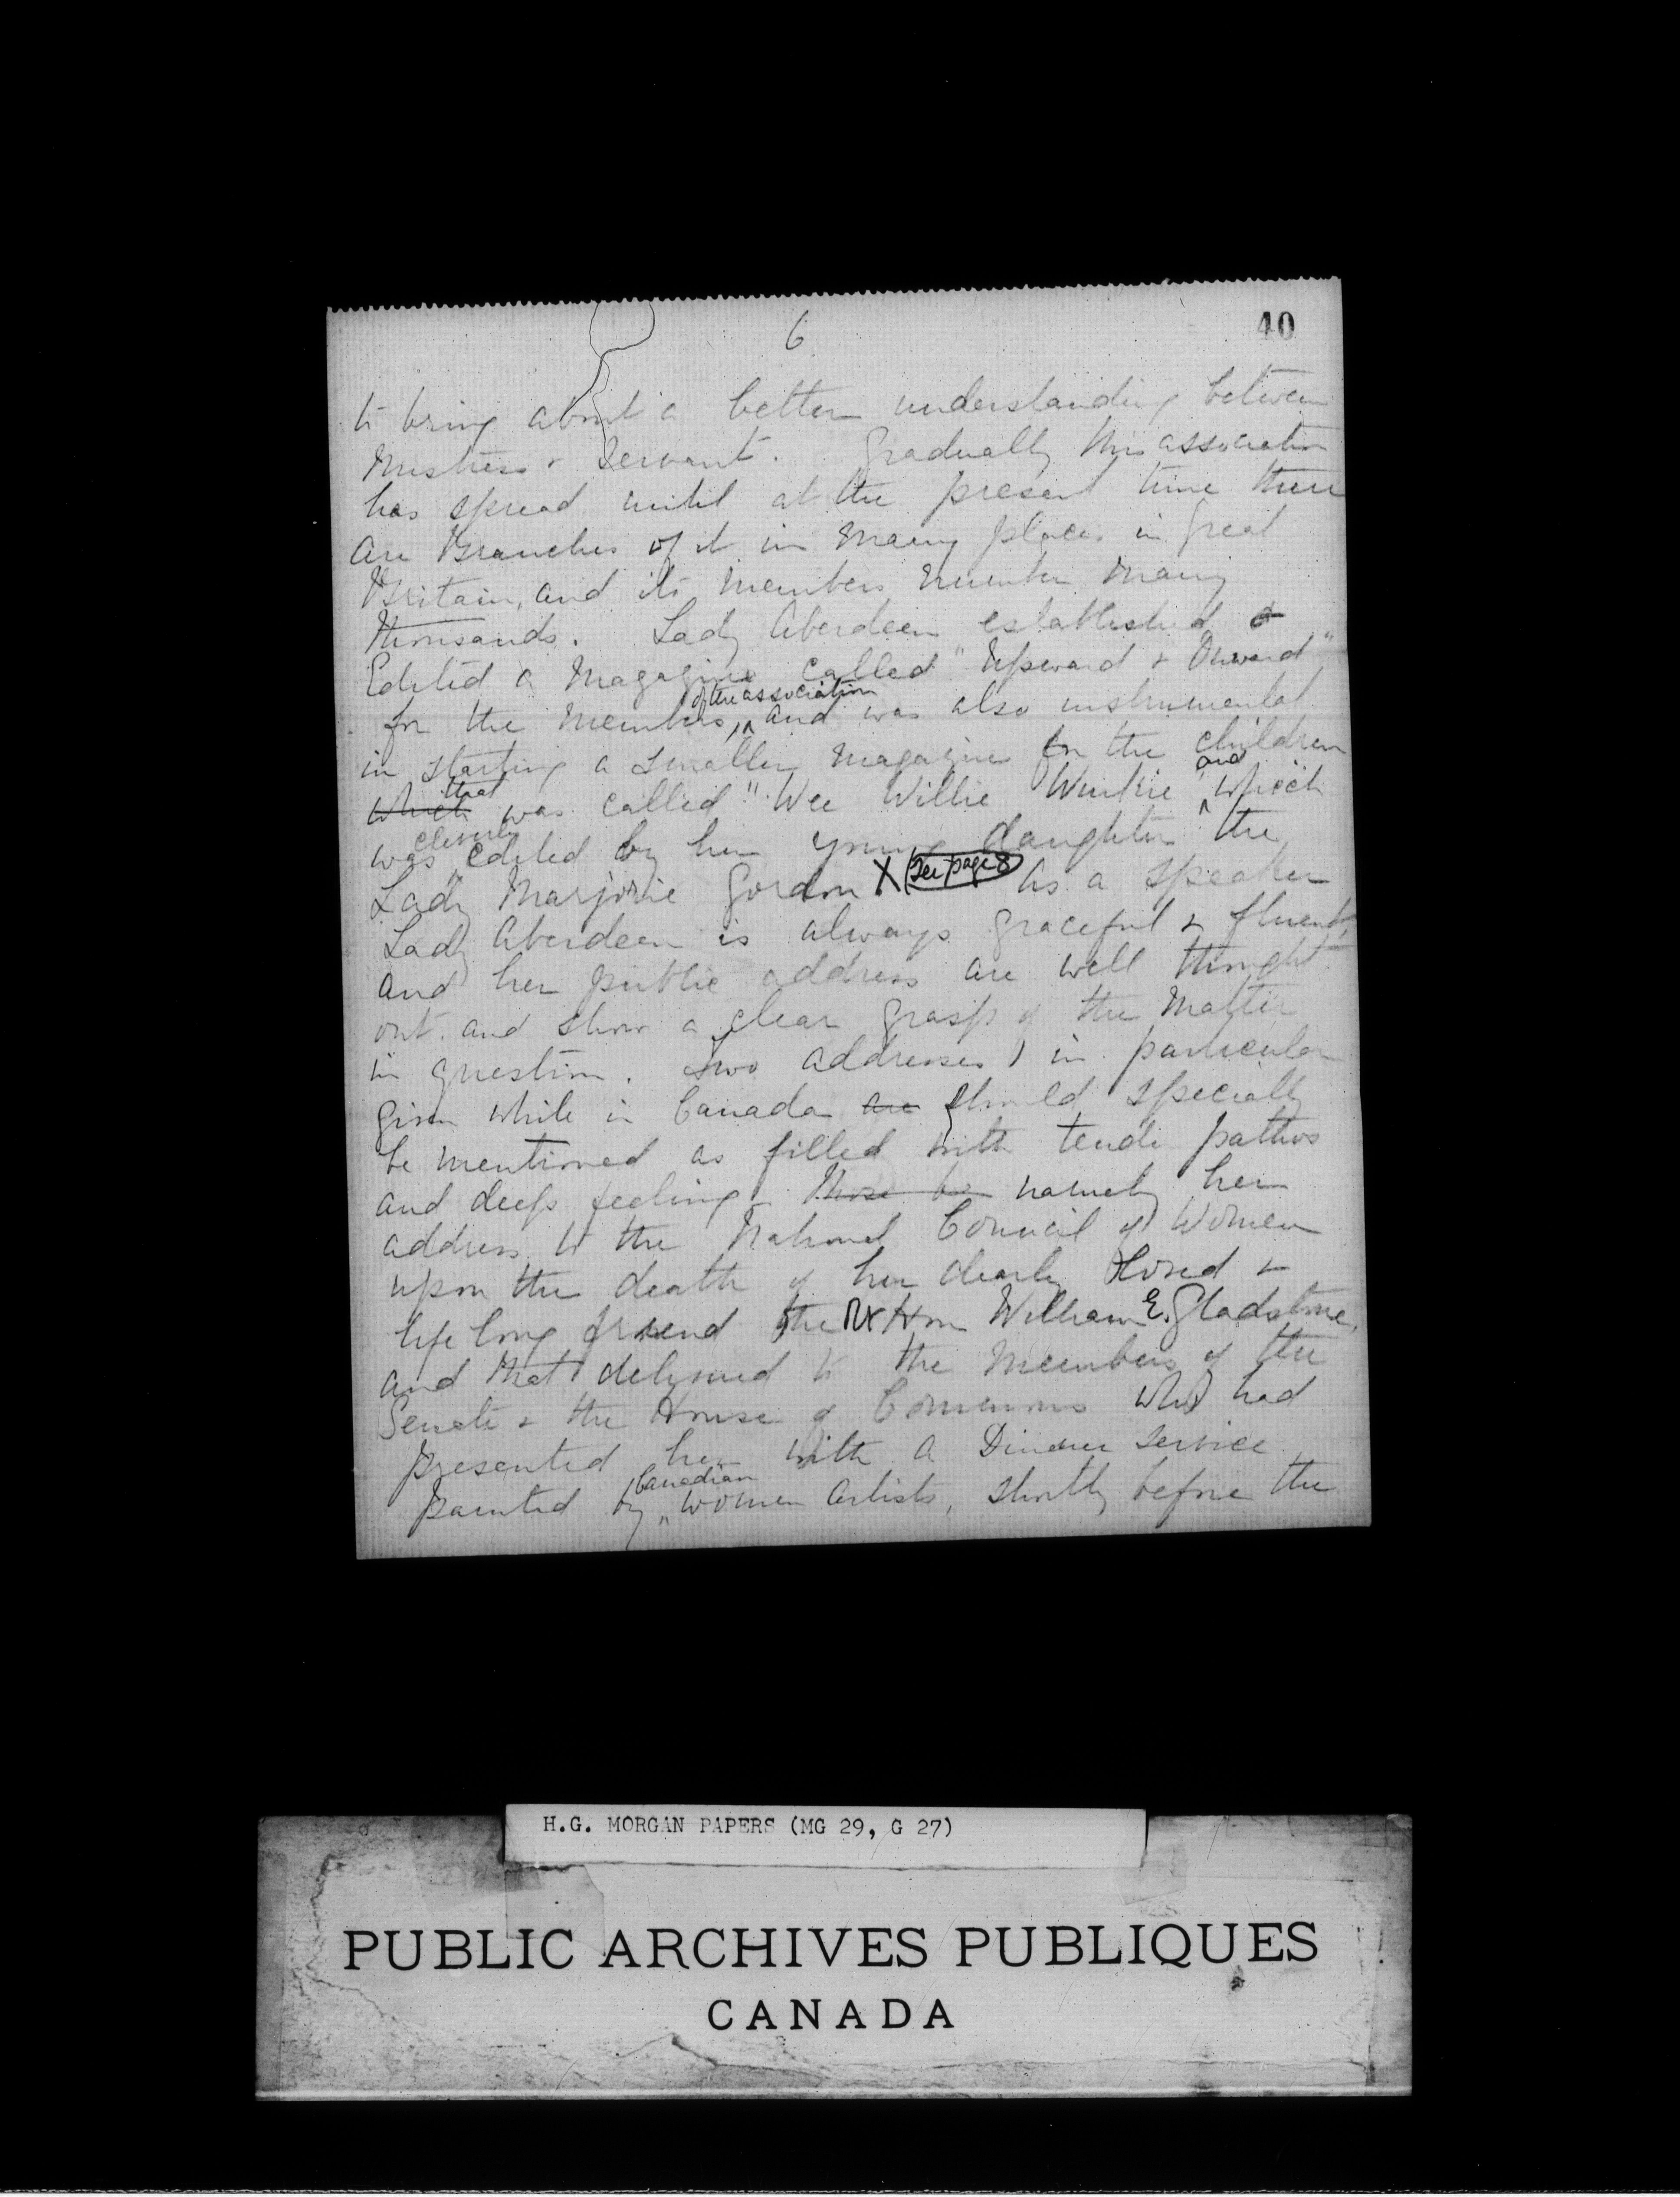 6
40
to bring about a better understanding between
Mistress & Servant. Gradually this association
has spread until at the present time there
are Branches of it in many places in Great
Britain, and its members number many
thousands. Lady Aberdeen established &
Edited a Magazine called "Upward & Onward"
of the association
for the members, and was also instrumental
in starting a smaller Magazine for the children
that and
which was called "Wee Willie Winkie which
cleverly
was edited by her young daughter the
Lady Marjorie Gordon X See page 8 As a speaker
Lady Aberdeen is always graceful & fluent,
and her public address are well thought
out and show a clear grasp of the Matter
in question. Two addresses in particular
given while in Canada are should specially
be mentioned as filled with tender pathos
and deep feeling namely her
address to the National Council of Women
upon the death of her dearly loved &
life long friend the Rt Hon William E. Gladstone,
and that delivered to the Members of the
Senate & the House of Commons who had
presented her with a Dinner Service
Canadian
painted by women artists, shortly before the
H.G. MORGAN PAPERS (MG 29, G 27)
PUBLIC ARCHIVES PUBLIQUES
CANADA